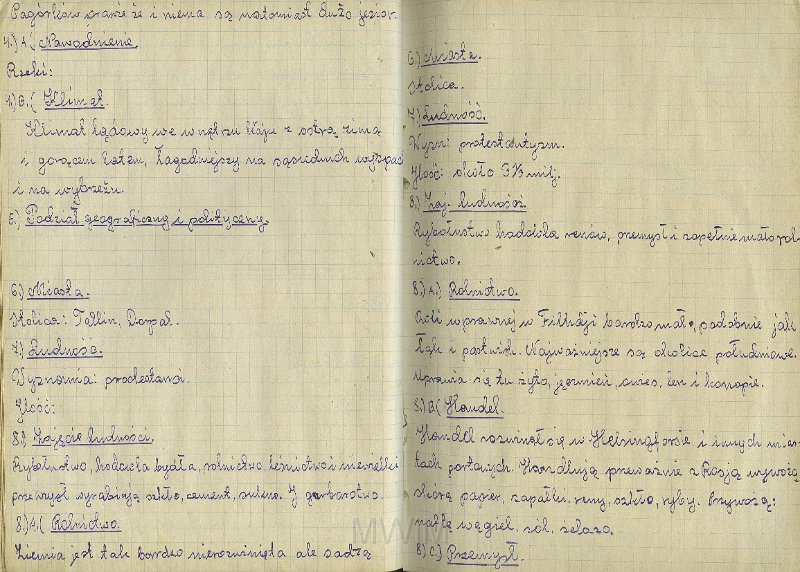 Pagórków prawie że i niema są natomiast dużo jezior.
4.) A.( Nawodnienie
Rzeki:
4.) B.( Klimat
Klimat lądowy we wnętrzu kraju z ostrą zimą
i gorącem latem. Łagodniejszy na sąsiednich wyspac
i na wybrzeżu.
5.) Podział geograficzny i polityczny.
6.) Miasta.
Stolica: Tallin, Dorpat.
7.) Ludność.
Wyznania: protestanci.
Ilość:
8.) Zajęcie ludności.
Rybołustwo, hodowla bydła, rolnictwo leśnictwo i niewielki
przemysł wyrabiają szkło, cement, sukno. I garbarstwo.
8.) A.( Rolnictwo.
Ziemia jest tak bardzo nierozwinięta ale sadzą
6.) Miasta.
Stolica.
7.) Ludność.
Wyzn: protestantyzm.
Ilość: około 3½ milj.
8.) Zaj. ludności.
Rybołustwo hodowla renów, przemysł i zupełnie mało rol-
nictwo.
8.) A.) Rolnictwo.
Roli uprawnej w Finlndji bardzo mało, podobnie jak
łąk i pastwisk. Najważniejsze są okolice południowe.
uprawia się tu żyto, jęczmień, owies, len i konopie.
8.) B.( Handel.
Handel rozwinął się w Helsingforsie i innych mias-
tach portowych. Handlują przeważnie z Rosją wywożą
skórą papier, zapałki, reny, szkło, ryby. Przywożą:
naftę węgiel, sól, żelazo.
8.) C.) Przemysł.
MWiM